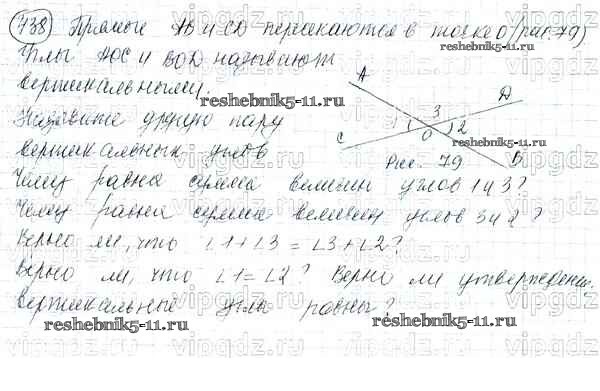 738 Прямые AB и CD пересекаются в точке O (рис. 79)
Углы AOC и BOD называют
вертикальными.
reshebnik5-11.ru
reshebnik5-11.ru
Назовите другую пару
вертикальных углов
A
3
D
1
2
O
C
B
reshebnik5-11.ru
Рис. 79
Чему равна сумма величин углов 1 и 3?
Чему равна сумма величин углов 3 и 2?
Верно ли, что ∠1+∠3 = ∠3+∠2?
Верно ли, что ∠1=∠2? Верно ли утверждение:
вертикальные углы равны?
reshebnik5-11.ru
reshebnik5-11.ru
vipgdz.ru